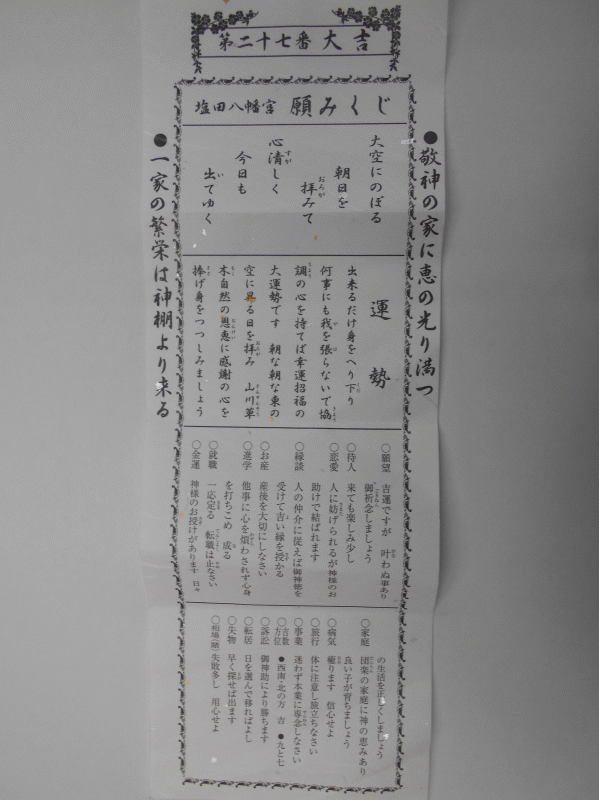 第二十七番 大吉
塩田八幡宮 願みくじ
●敬神の家に恵の光り満つ
大空にのぼる
朝日を
拝みて
心清しく
今日も
出てゆく
運勢
出来るだけ身をへり下り
何事にも我を張らないで協
調の心を持てば幸運招福の
大運勢です 朝な朝な東の
空に昇る日を拝み 山川草
木自然の恩恵に感謝の心を
捧げ身をつつしみましょう
○願望 吉運ですが 叶わぬ事あり
御祈念しましょう
○待人 来ても楽しみ少し
○恋愛 人に妨げられるが神様のお
助けで結ばれます
○縁談 人の仲介に従えば御神徳を
受けて吉い縁を授かる
○お産 産後を大切にしなさい
○進学 他事に心を煩わされず心身
を打ちこめ 成る
○就職 一応定る 転職は止なさい
○金運 神様のお授けがあります 日々
の生活を正しくしましょう
○家庭 団楽の家庭に神の恵みあり
良い子が育ちましょう
○病気 癒ります 信心せよ
○旅行 体に注意し旅立ちなさい
○事業 迷わず本業に専念しなさい
○吉数方位 ●西南・北の方 吉 ●九と七
○訴訟 御神助により勝ちます
○転居 日を選んで移ればよし
○失物 早く探せば出ます
○相場(賭) 失敗多し 用心せよ
●一家の繁栄は神棚より来る